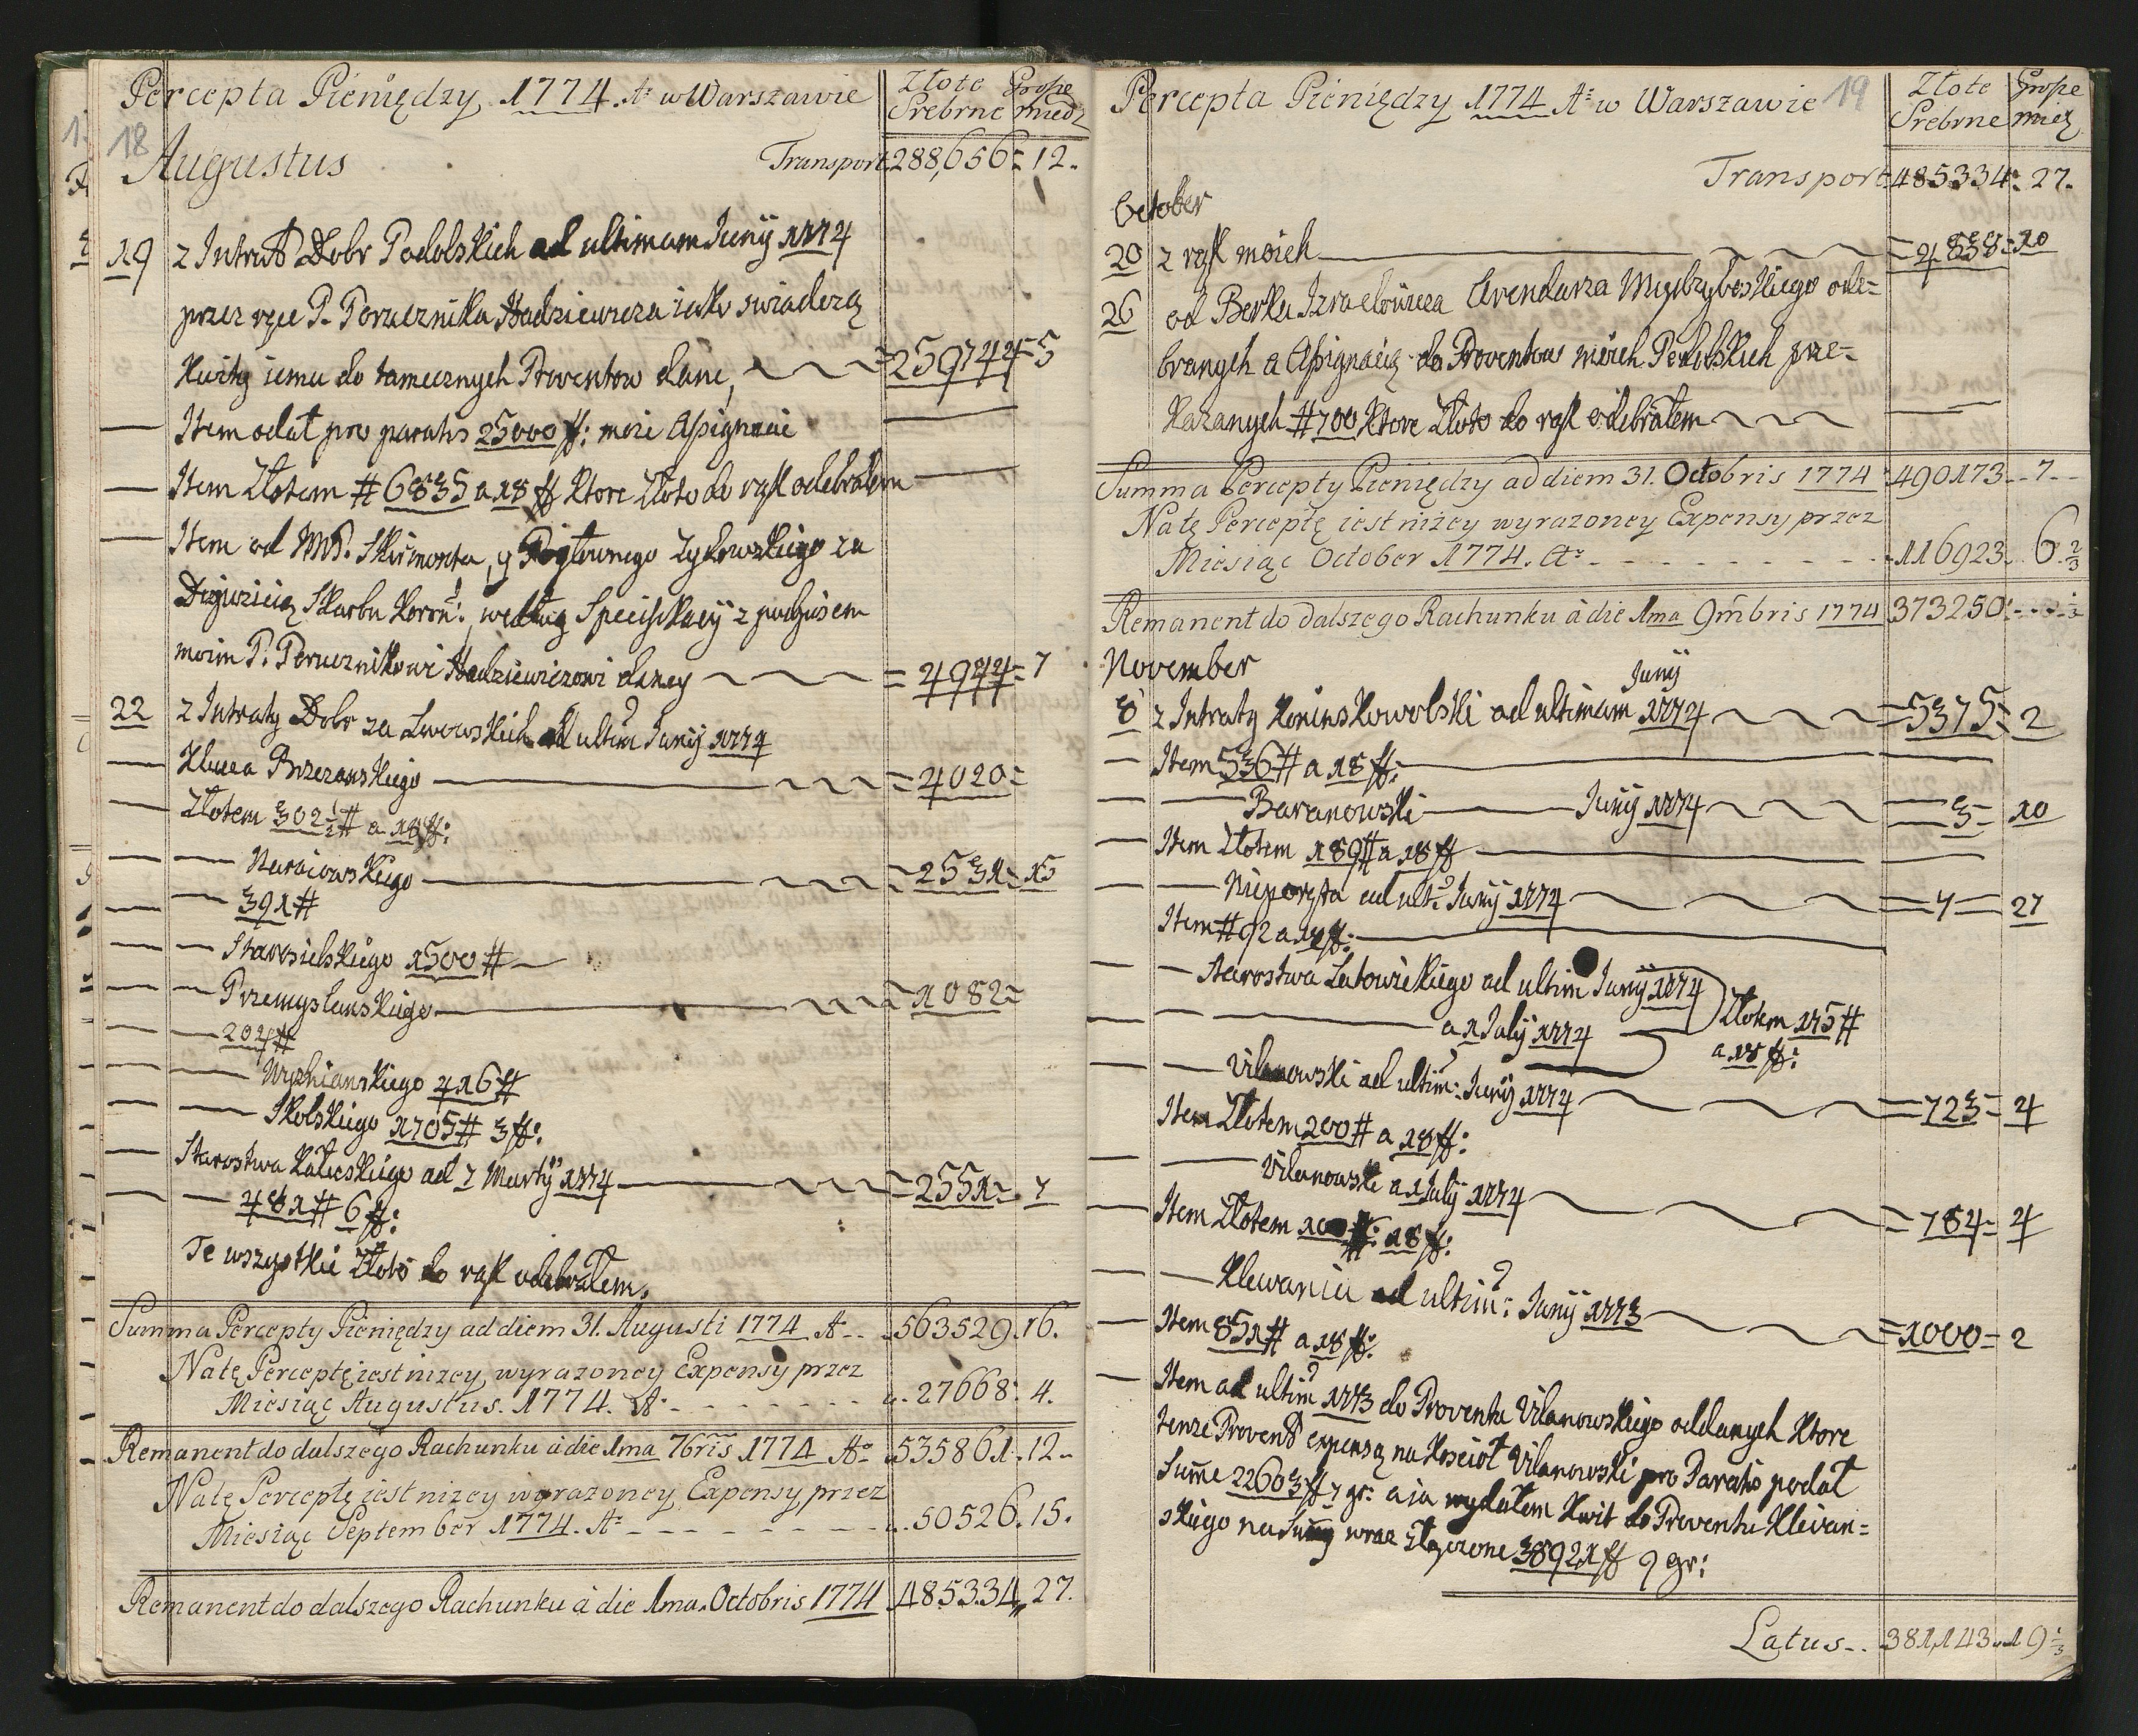 Percepta Pieniędzy 1774. Aº w Warszawie
Złote Grosze
Srebrne miedz
18
Augustus Transport 288,656 = 12.
19 z Intrat Dobr Podolskich ad ultimam Junij 1774
przez ręce P. Porucznika Hadziewicza iako swiadczą
Kwity iemu do tamecznych Proventow dane, = 259744 = 5
Item odał pro paratis 25000 ff: moie Assignacie
Item Złotem # 6835 a 18 ff Ktore Złoto do rąk odebrałem
Item od MP. Skirmonta, y Zyłowskiego za
Skarbu Koron: według Specifikacij z podpisem
moim P. Porucznikowi Hadziewiczowi daney = 4944 = 7
22 z Intraty Dobr za Lwowskich ad ultim Junij 1774
Klucza Brzezanskiego = 4020 =
Złotem 302½ # a 18 ff:
Naraiowskiego = 2531 = 15
391 #
Starosielskiego 1500 #
Przemyslanskiego = 1082 =
204 #
416 #
Skolskiego 1705 # 3 ff:
Starostwa Kałuskiego ad 7 Martij 1774 = 2551 = 7
481 # 6 ff:
Te wszystkie Złoto do rąk odebrałem.
Summa Percepty Pieniędzy ad diem 31. Augusti 1774 Aº 563529. 16.
Na tę Perceptę iest nizey wyrazoney Expensy przez
Miesiąc Augustus. 1774. Aº 27668. 4.
Remanent do dalszego Rachunku à die 1ma 7bris 1774 Aº 535861. 12
Na tę Perceptę iest nizey wyrazoney Expensy przez
Miesiąc September 1774. Aº 50526. 15.
Remanent do dalszego Rachunku à die 1ma Octobris 1774 485334, 27.
Percepta Pieniędzy 1774 Aº w Warszawie 19
Złote Grosze
Srebrne miedz
Transport 485334. 27.
October
20 z rąk moich = 4838 = 10
26 od Berka Izraelowicza Arendarza Międzybozkiego ode=
branych a Assignacią do Proventow moich Podolskich prze=
kazanych # 700 Ktore Złoto do rąk odebrałem
Summa Percepty Pieniędzy ad diem 31. Octobris 1774 490173. 7
Na tę Perceptę iest nizey wyrazoney Expensy przez
Miesiąc October 1774. Aº 116923. 6 2/3
Remanent do dalszego Rachunku à die 1ma 9mbris 1774 373250 1/3
November
8 z Intraty Koninskowolski ad ultimam Junij 1774 = 5375 = 2
Item 536 # a 18 ff:
Baranowski Junij 1774 = 3 = 10
Item Złotem 189 # a 18 ff
Nieporęta ad ult: Junij 1774 = 7 = 27
Item # 92 a 18 ff:
Starostwa Latowickiego ad ultim Junij 1774
a 1 Julij 1774 Złotem 175 #
a 18 ff:
Vilanowski ad ultim: Junij 1774 = 723 = 4
Item Złotem 200 # a 18 ff:
Vilanowski a 1 Julij 1774 = 784 = 4
Item Złotem 100 18 ff:
Klewania ad ultim: Junij 1773 = 1000 = 2
Item 851 # a 18 ff:
Item ad ultim 1773 do Proventu Vilanowskiego oddanych Ktore
tenze Provent expensą na Koscioł Vilanowski pro Paratis podał
Summe 22603 ff 7 gr: a ia wydałem Kwit do Proventu Klevan=
skiego na Summy wraz złączone 38921 ff 9 gr:
Latus 381,143. 19 1/3